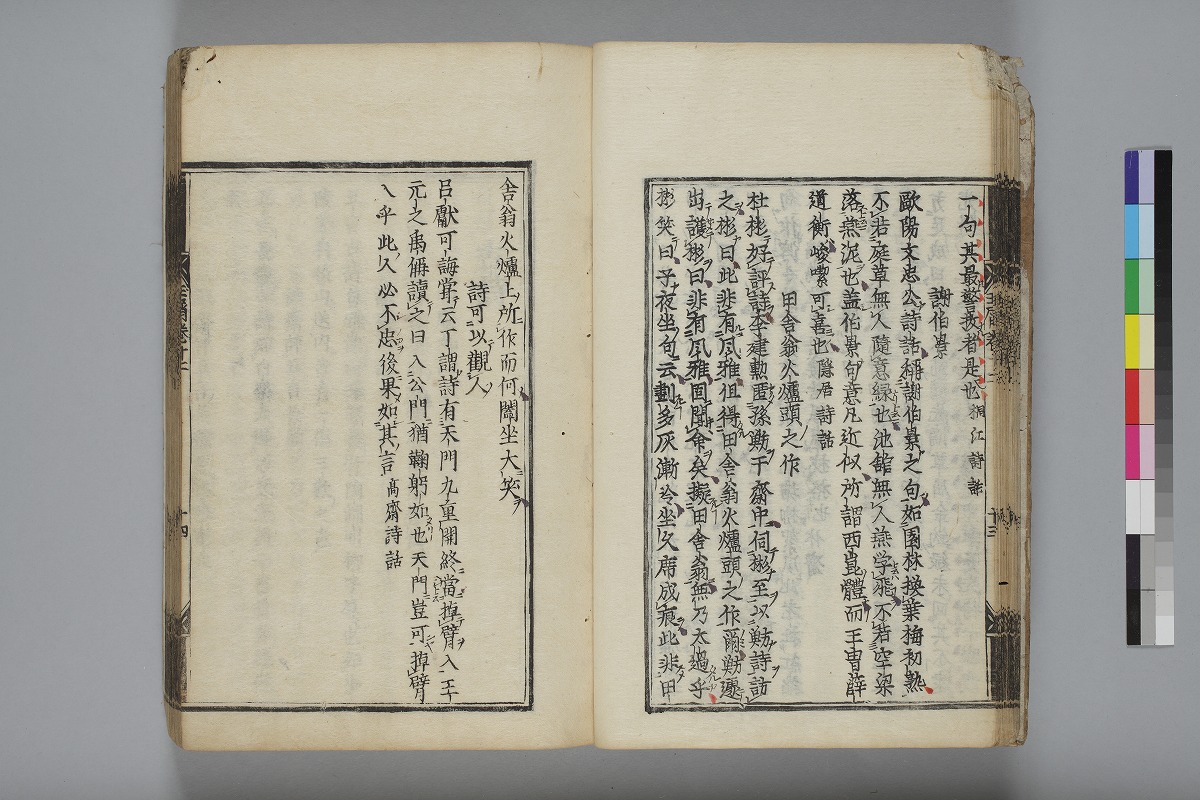 一句其最警救者是也 桐江詩話
謝伯景
歐陽文忠公詩話稱謝伯景之句如園林換葉梅初熟
不若庭草無人隨意綠也池館無人燕学飛不若空梁
落燕泥也盖伯景句意凡近似所謂西崑體而王曹薛
道衡峻㗲可喜也 隱居詩話
田舍翁火爐頭之作
杜彬好評詩李建勳匿孫魴于齋中伺彬至以魴詩訪
之彬曰此非有風雅但得田舍翁火爐頭之作爾魴遽
出讓彬曰非有風雅固聞命矣擬田舍翁無乃太過乎
彬笑曰子夜坐句云劃多灰漸冷坐久席成痕此非甲
舍翁火爐上所作而何闔坐大笑
詩可以觀人
呂獻可誨嘗云丁謂詩有天門九重開終當掉臂入王
元之禹偁讀之曰入公門猶鞠躬如也天門豈可掉臂
入乎此人必不忠後果如其言 高齋詩話
卷十二
十四
十三